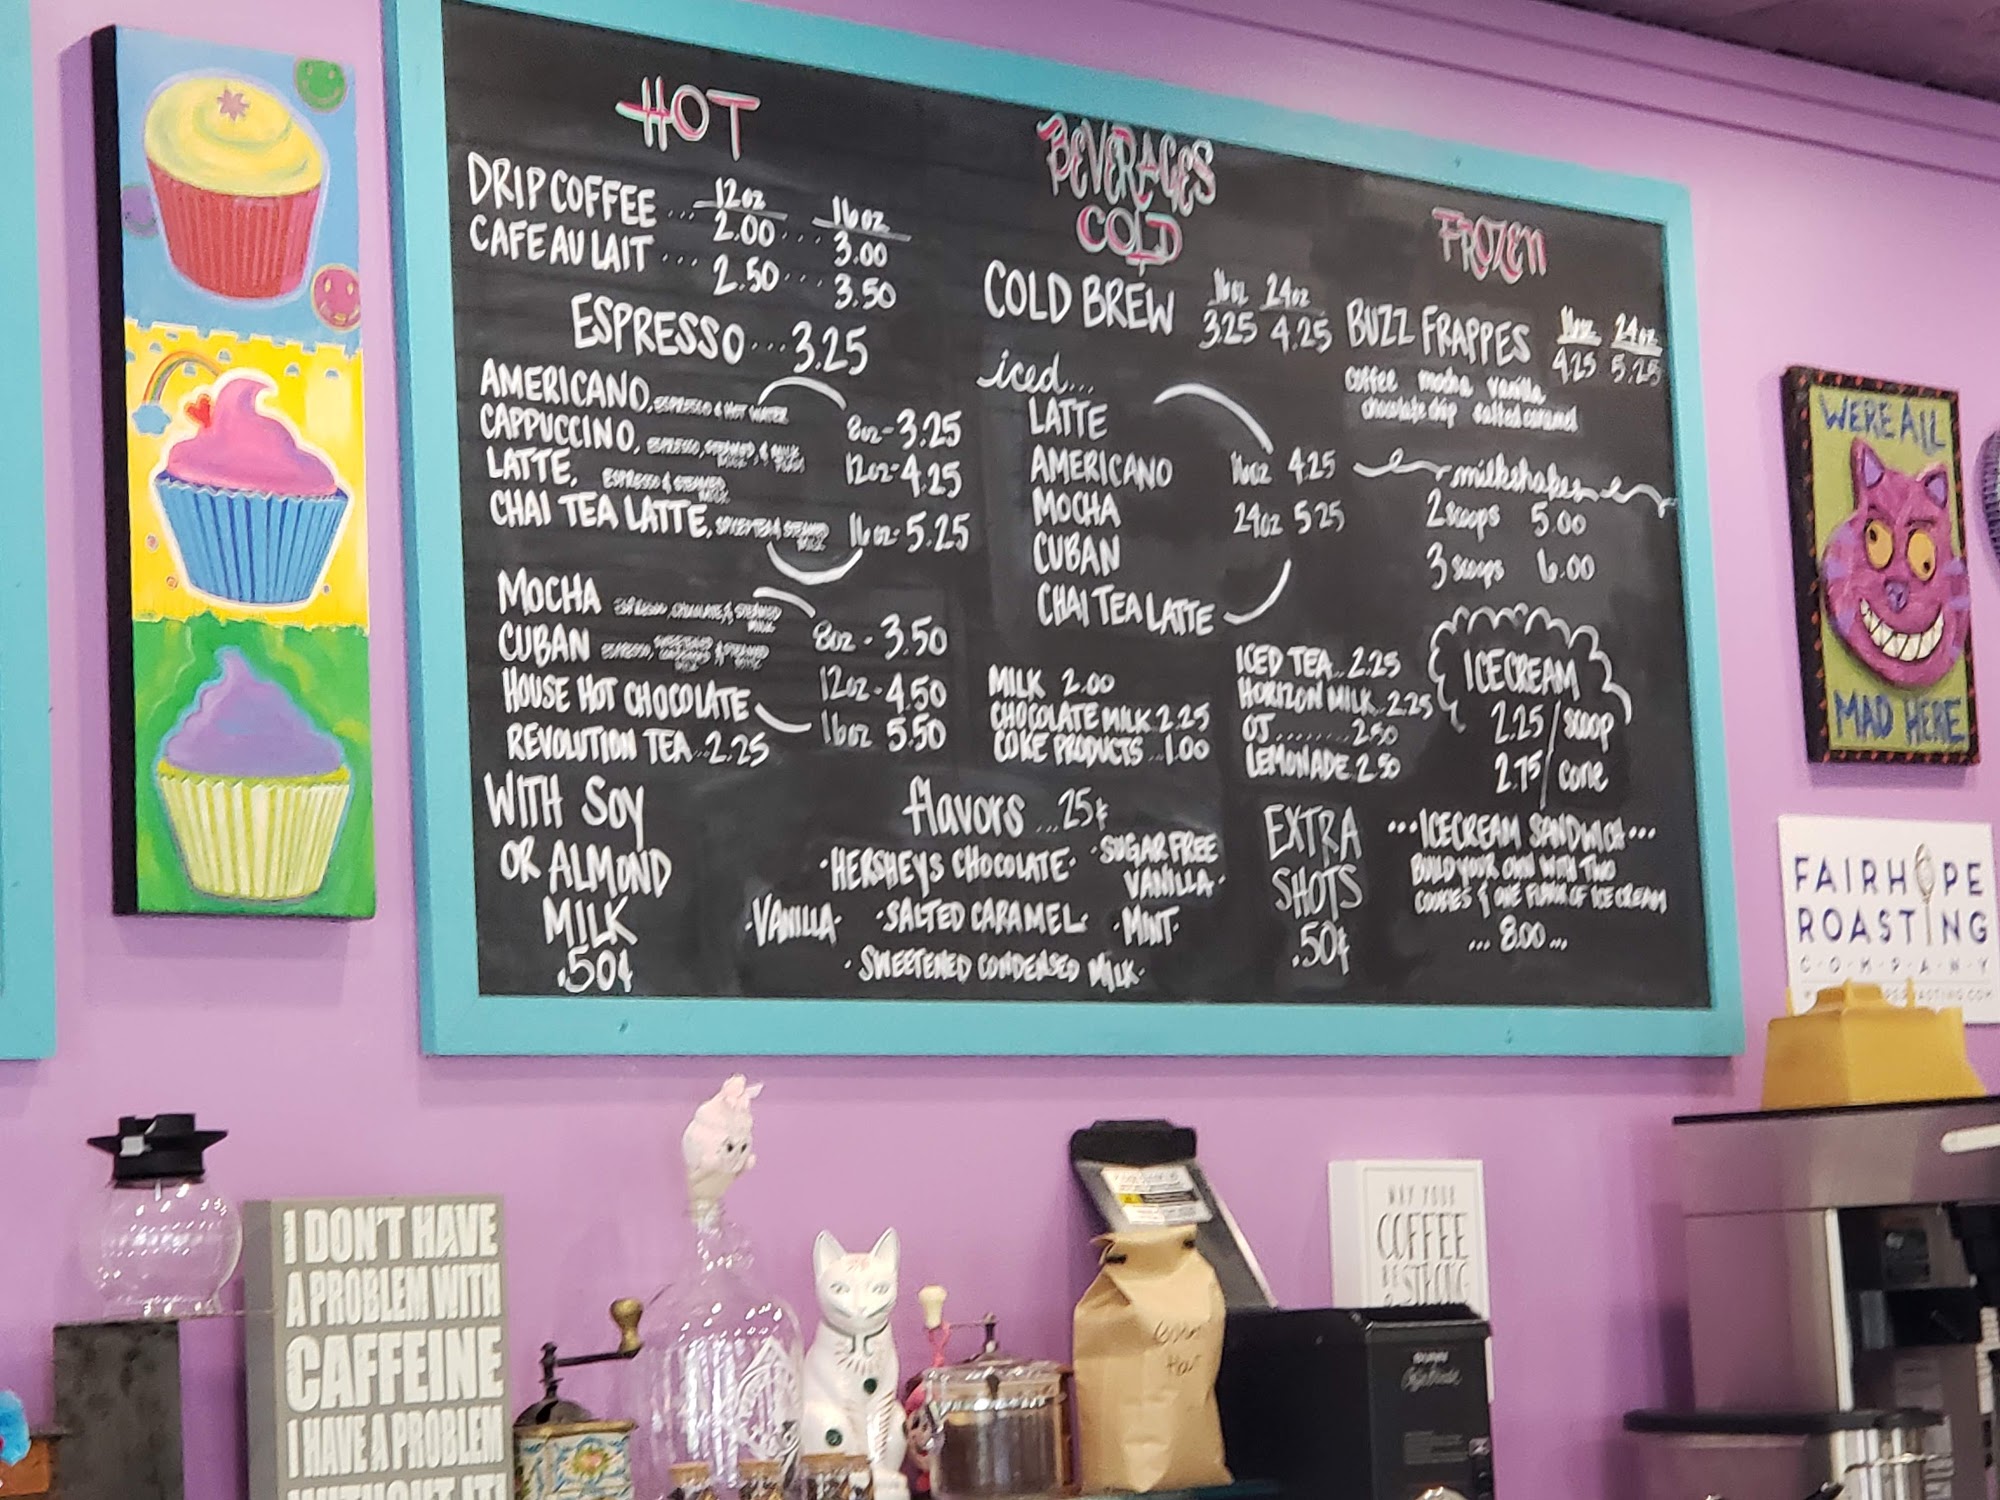 HOT
12oz 16oz
DRIP COFFEE ... 2.00 ... 3.00
CAFE AU LAIT ... 2.50 ... 3.50
ESPRESSO ... 3.25
AMERICANO, ESPRESSO & HOT WATER
CAPPUCCINO, ESPRESSO, STEAMED & MILK FOAM
LATTE, ESPRESSO & STEAMED MILK
CHAI TEA LATTE, SPICED TEA & STEAMED MILK
8oz-3.25
12oz-4.25
16oz-5.25
MOCHA ESPRESSO, CHOCOLATE, & STEAMED MILK
CUBAN ESPRESSO, & STEAMED MILK
HOUSE HOT CHOCOLATE
8oz-3.50
12oz-4.50
16oz 5.50
REVOLUTION TEA...2.25
WITH SOY
OR ALMOND
MILK
.50¢
BEVERAGES
COLD
16oz 24oz
COLD BREW 3.25 4.25
iced...
LATTE
AMERICANO
MOCHA
CUBAN
CHAI TEA LATTE
16oz 4.25
24oz 5.25
MILK 2.00
CHOCOLATE MILK 2.25
COKE PRODUCTS ...1.00
ICED TEA...2.25
HORIZON MILK...2.25
OJ........2.50
LEMONADE 2.50
flavors ...25¢
·HERSHEYS CHOCOLATE·
·SUGAR FREE
VANILLA·
·VANILLA·
·SALTED CARAMEL·
·MINT·
·SWEETENED CONDENSED MILK·
EXTRA
SHOTS
.50¢
FROZEN
16oz 24oz
BUZZ FRAPPES 4.25 5.25
coffee mocha vanilla
chocolate chip salted caramel
milkshakes
2 scoops 5.00
3 scoops 6.00
ICECREAM
2.25/scoop
2.75/cone
...ICECREAM SANDWICH...
BUILD YOUR OWN WITH TWO
COOKIES & ONE FLAVOR OF ICE CREAM
... 8.00 ...
WE'RE ALL
MAD HERE
FAIRHOPE
ROASTING
C·O·M·P·A·N·Y
I DON'T HAVE
A PROBLEM WITH
CAFFEINE
I HAVE A PROBLEM
WITHOUT IT!
MAY YOUR
COFFEE
BE STRONG